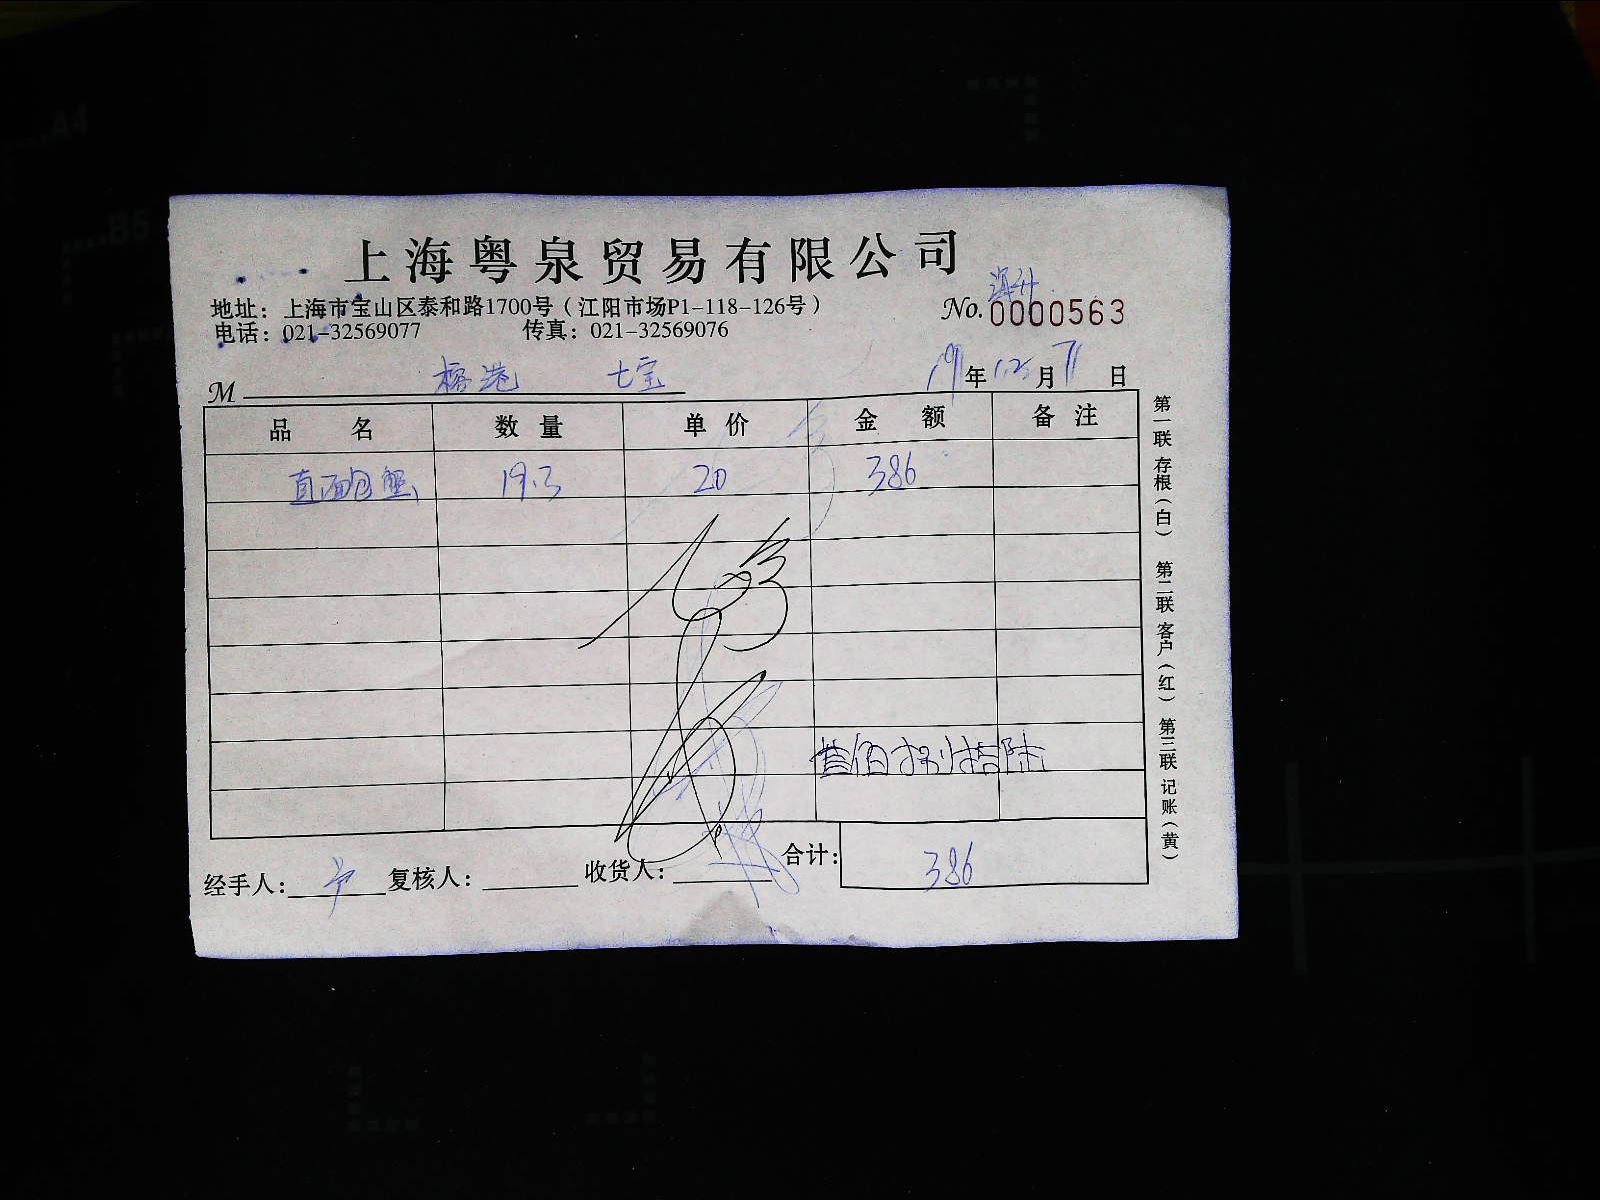 上海粤泉贸易有限公司
地址：上海市宝山区泰和路1700号（江阳市场P1-118-126号）
No.0000563
电话：021-32569077 传真：021-32569076
M 七宝
19年12月7日
品名 数量 单价 金额 备注
直面包蟹 19.3 20 386
叁佰捌拾陆
经手人： 复核人： 收货人： 合计：386
第一联存根（白） 第二联客户（红） 第三联记账（黄）